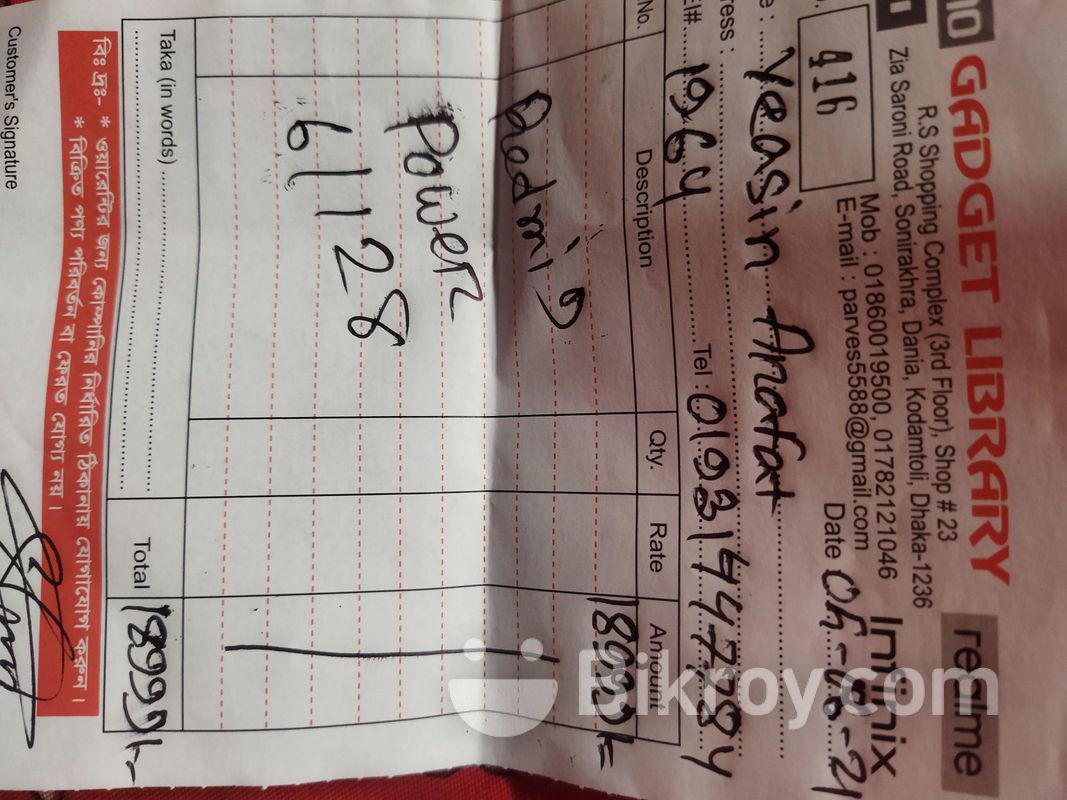 10 GADGET LIBRARY realme
R.S Shopping Complex (3rd Floor), Shop # 23
Zia Saroni Road, Sonirakhra, Dania, Kodamtoli, Dhaka-1236
Mob : 01860019500, 01782121046 Infinix
E-mail : parves5588@gmail.com
416
Date
e : Yeasin Arafat
ress :
EI#: 1964 Tel 01931447784
No. Description Qty. Rate Amount
Redmi 9 18999/=
Power
6/128
Taka (in words) Total 18999/-
বিঃ দ্রঃ- * ওয়ারেন্টির জন্য কোম্পানির নির্ধারিত ঠিকানায় যোগাযোগ করুন।
* বিক্রিত পণ্য পরিবর্তন বা ফেরত যোগ্য নয়।
Customer's Signature
Bikroy.com